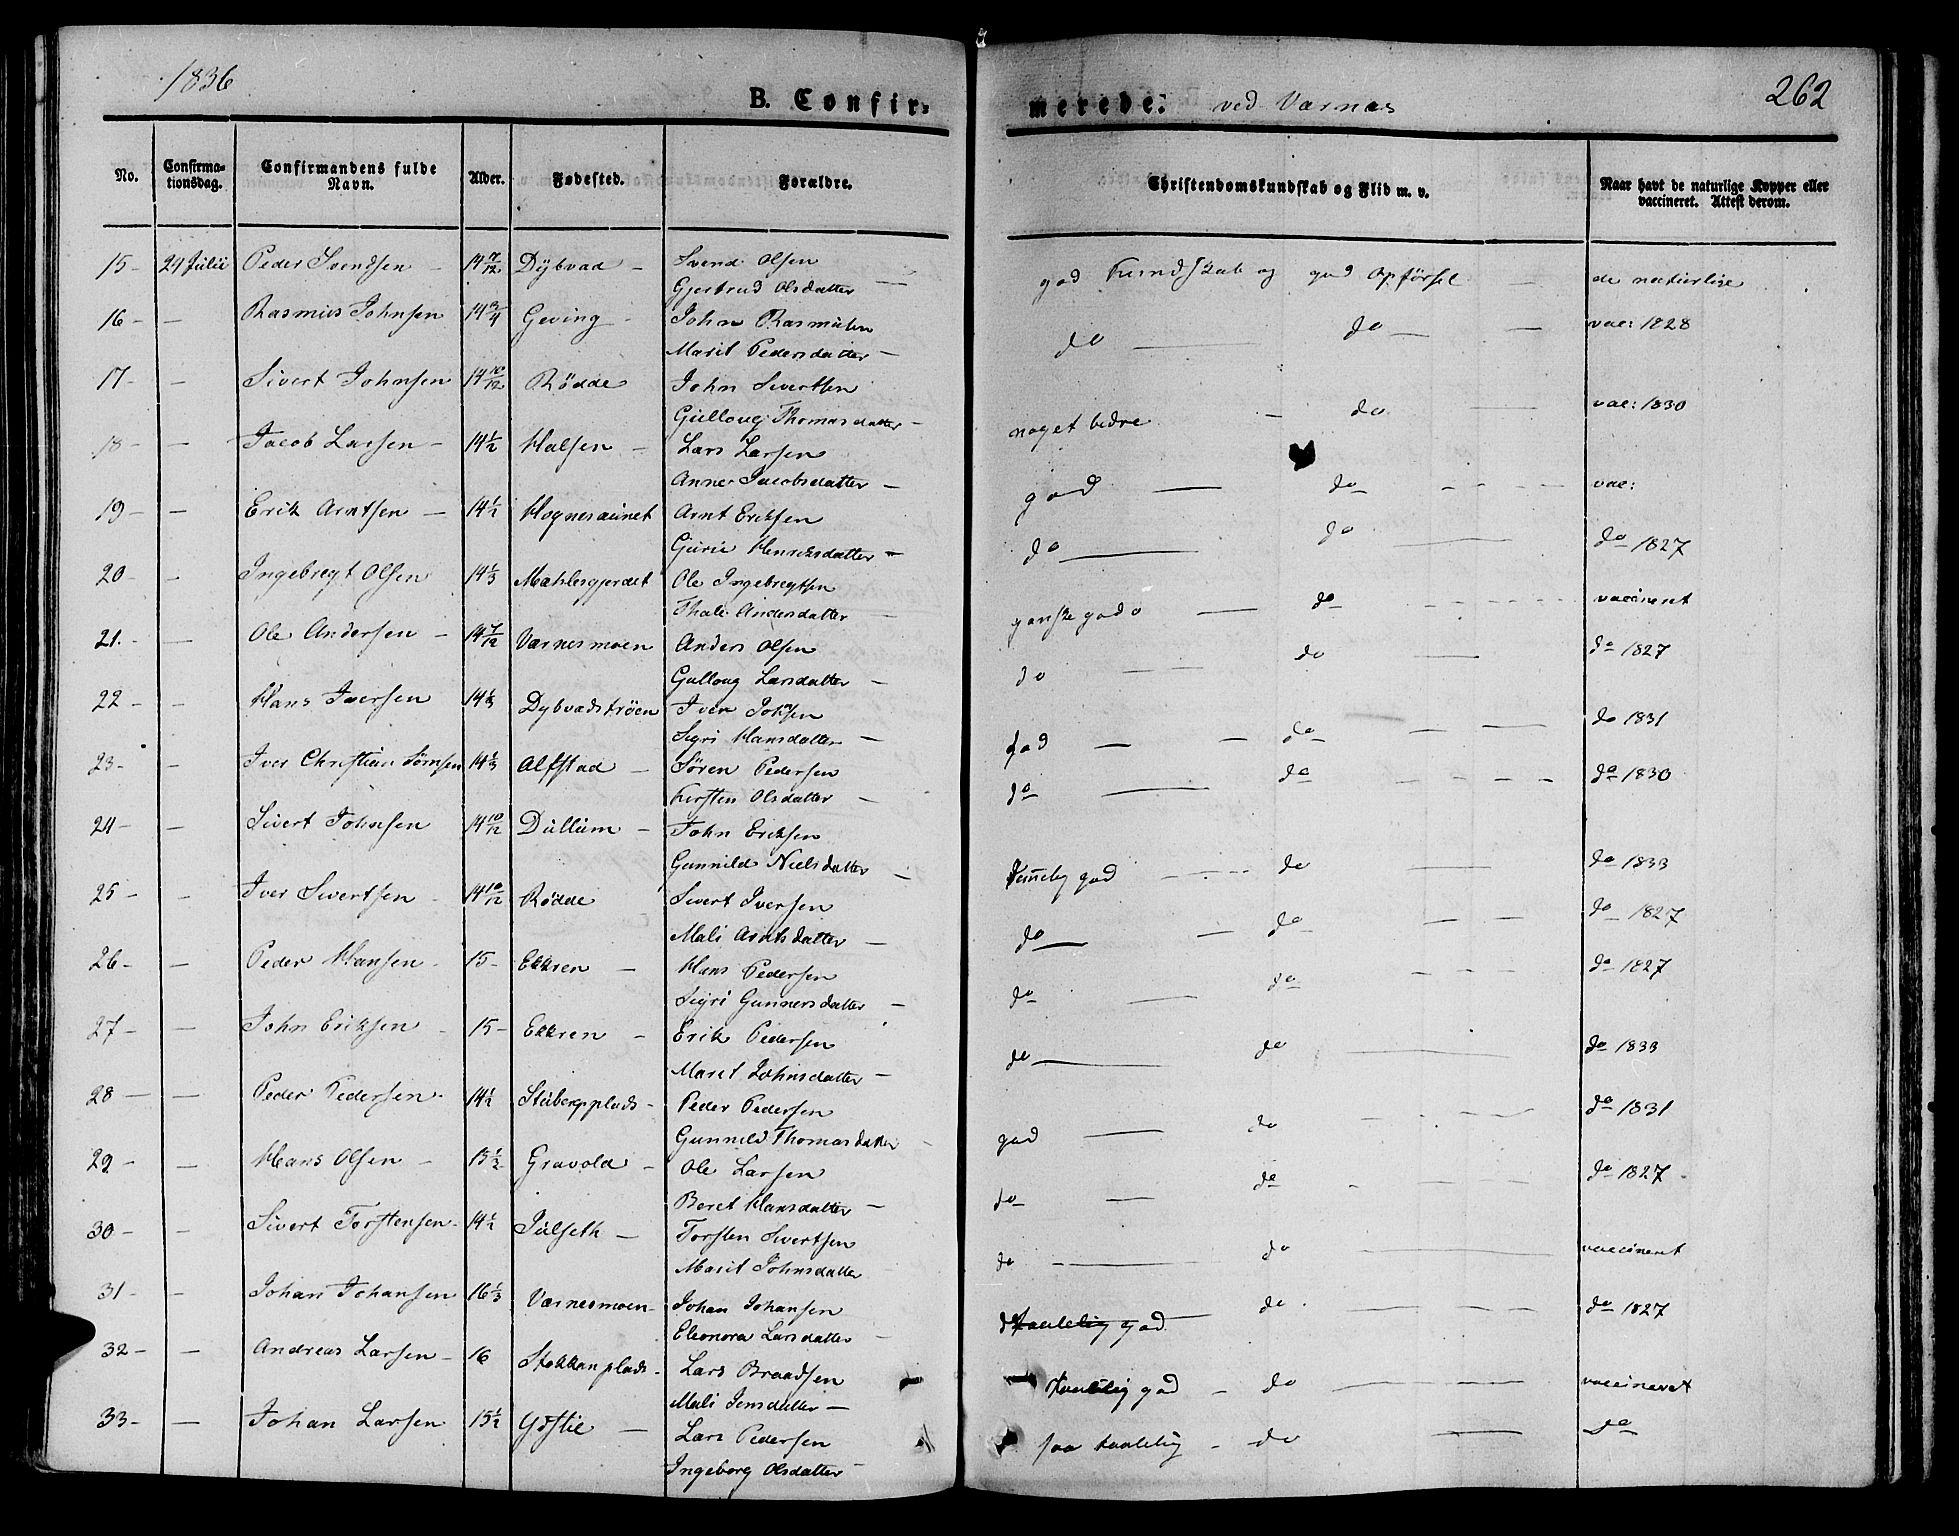 1836
B. Confirmerede. ved Værnes
262
No. Confirmationsdag. Confirmandens fulde Navn. Alder. Fødested. Forældre. Christendomskundskab og Flid m. v. Naar havt de naturlige Kopper eller vaccineret. Attest derom.
15 - 24 Julii Peder Svendsen - 14 7/12 Dybvad - Svend Olsen god Kundskab og god Opførsel - de naturlige
Gjertrud Olsdatter -
16 - - Rasmus Johnsen 14 3/4 Geving - John Rasmusen do - do - - vac: 1828
Marit Pedersdatter -
17 - - Sivert Johnsen 14 10/12 Rödde John Sivertsen noget bedre - do - vac: 1830
Gullaug Thomasdatter -
18 - - Jacob Larsen - 14 1/2 Halsen - Lars Larsen god - do - vac:
Anne Jacobsdatter -
19 - - Erik Arntsen - 14 1/2 Hognesaunet Arnt Eriksen do - do - do 1827
Gurie Henriksdatter -
20 - - Ingebregt Olsen 14 1/3 Mæhlesgjerdet Ole Ingebregtsen ganske god - do - vaccineret
Thale Andersdatter -
21. - Ole Andersen - 14 7/12 Værnesmoen Anders Olsen do - do - do 1827
Gullaug Larsdatter -
22 - - Hans Iversen 14 1/3 Dybvadströen Iver Johnsen god - - do - - do 1831
Sigri Hansdatter -
23 - - Iver Christian Sørnsen 14 1/3 Alfstad - Sören Pedersen do - do - do 1830
Kersten Olsdatter -
24 - - Sivert Johnsen 14 10/12 Dullum - John Eriksen temelig god - do - do 1833
Gunnild Nielsdatter -
25 - - Iver Sivertsen - 14 10/12 Rödde Sivert Iversen do - - do - - do 1827
Mali Arntsdatter -
26 - - Peder Hansen - 15 - Ekkren - Hans Pedersen do - do - do 1827
Sigri Gunnersdatter -
27 - - John Eriksen - 15 - Ekkren - Erik Pedersen do - do - do 1833
Marit Johnsdatter -
28 - - Peder Pedersen - 14 1/2 Stubergplads - Peder Pedersen god - do - do 1831
Gunnild Thomasdatter -
29 - - Hans Olsen - 15 1/2 Gravold - Ole Larsen do - do - do 1827
Beret Hansdatter -
30 - - Sivert Torstensen - 14 1/2 Julseth - Torsten Sivertsen do - do - vaccineret
Marit Johnsdatter -
31 - - Johan Johansen 16 1/3 Værnesmoen - Johan Johansen god - do - do 1827
Eleonora Larsdatter -
32 - - Andreas Larsen - 16 Stokkanplads - Lars Braadsen taalelig god - do - vaccineret
Mali Jensdatter -
33 - - Johan Larsen 15 1/2 Ydstie - Lars Pedersen saa taalelig - do - do
Ingeborg Olsdatter -